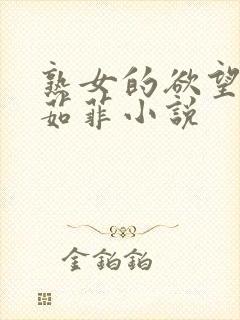 熟女的欲望
茹菲小説
金鉑鉑